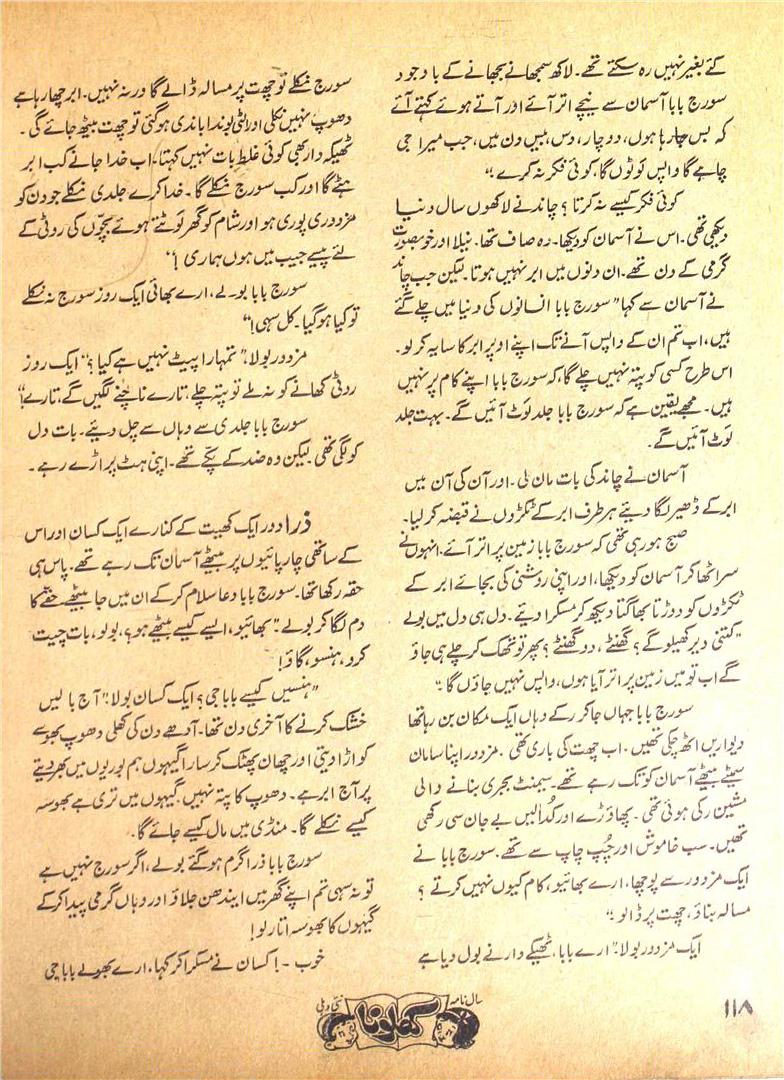 کئے بغیر نہیں رہ سکتے تھے۔ لاکھ سمجھانے بجھانے کے باوجود
سورج بابا آسمان سے نیچے اتر آئے اور آتے ہوئے کہتے آئے
کہ بس جا رہا ہوں، دو چار، دس، بیس دن میں، جب میرا جی
چاہے گا واپس لوٹوں گا، کوئی فکر نہ کرے ؛"
کوئی فکر کیسے نہ کرتا ؟ چاند نے لاکھوں سال دنیا
دیکھی تھی۔ اس نے آسمان کو دیکھا۔ وہ صاف تھا۔ نیلا اور خوبصورت
گرمی کے دن تھے۔ ان دنوں میں ابر نہیں ہوتا۔ لیکن جب چاند
نے آسمان سے کہا " سورج بابا انسانوں کی دنیا میں چلے گئے
ہیں، اب تم ان کے واپس آنے تک اپنے اوپر ابر کا سایہ کر لو۔
اس طرح کسی کو پتہ نہیں چلے گا، کہ سورج بابا اپنے کام پر نہیں
ہیں۔ مجھے یقین ہے کہ سورج بابا جلد لوٹ آئیں گے۔ بہت جلد
لوٹ آئیں گے۔
آسمان نے چاند کی بات مان لی۔ اور آن کی آن میں
ابر کے ڈھیر لگا دیئے ہر طرف ابر کے ٹکڑوں نے قبضہ کر لیا۔
صبح ہو رہی تھی کہ سورج بابا زمین پر اتر آئے۔ انہوں نے
سر اٹھا کر آسمان کو دیکھا، اور اپنی روشنی کی بجائے ابر کے
ٹکڑوں کو دوڑتا بھاگتا دیکھ کر مسکرا دیئے۔ دل ہی دل میں بولے
"کتنی دیر کھیلو گے؟ گھنٹے، دو گھنٹے؟ پھر تو تھک کر چلے ہی جاؤ
گے اب تو میں زمین پر اتر آیا ہوں، واپس نہیں جاؤں گا۔"
سورج بابا جہاں جا کر رکے وہاں ایک مکان بن رہا تھا
دیواریں اٹھ چکی تھیں۔ اب چھت کی باری تھی۔ مزدور اپنا سامان
سمیٹے بیٹھے آسمان کو تک رہے تھے۔ سیمنٹ بجری بنانے والی
مشین رکی ہوئی تھی۔ پھاؤڑے اور کدالیں بے جان سی رکھی
تھیں۔ سب خاموش اور چُپ چاپ سے تھے۔ سورج بابا نے
ایک مزدور سے پوچھا، ارے بھائیو، کام کیوں نہیں کرتے ؟
مسالہ بناؤ، چھت پر ڈالو ؛"
ایک مزدور بولا۔" ارے بابا، ٹھیکے دار نے بول دیا ہے
سورج نکلے تو چھت پر مسالہ ڈالے گا ورنہ نہیں۔ ابر چھا رہا ہے
دھوپ نہیں نکلی اور الٹی بوندا باندی ہو گئی تو چھت بیٹھ جائے گی۔
ٹھیکہ دار کبھی کوئی غلط بات نہیں کہتا، اب خدا جانے کب ابر
ہٹے گا اور کب سورج نکلے گا۔ خدا کرے جلدی نکلے جو دن کو
مزدوری پوری ہو اور شام کو گھر لوٹتے ہوئے بچّوں کی روٹی کے
لئے پیسے جیب میں ہوں ہماری !"
سورج بابا بولے، ارے بھائی ایک روز سورج نہ نکلے
تو کیا ہو گیا۔ کل سہی !"
مزدور بولا۔" تمہارا پیٹ نہیں ہے کیا ؟" ایک روز
روٹی کھانے کو نہ ملے تو پتہ چلے، تارے ناچنے لگیں گے، تارے !"
سورج بابا جلدی سے وہاں سے چل دیئے۔ بات دل
کو لگی تھی لیکن وہ ضد کے پکّے تھے۔ اپنی ہٹ پر اڑے رہے۔
ذرا دور ایک کھیت کے کنارے ایک کسان اور اس
کے ساتھی چارپائیوں پر بیٹھے آسمان تک رہے تھے۔ پاس ہی
حقہ رکھا تھا۔ سورج بابا دعا سلام کر کے ان میں جا بیٹھے حقّے کا
دم لگا کر بولے۔" بھائیو، ایسے کیسے بیٹھے ہو؟، بولو، بات چیت
کرو، ہنسو، گاؤ !
"ہنسیں کیسے بابا جی؟ ایک کسان بولا۔" آج بالیں
خشک کرنے کا آخری دن تھا۔ آدھے دن کی کھلی دھوپ بھوسے
کو اڑا دیتی اور چھان پھٹک کر سارا گیہوں ہم بوریوں میں بھر دیتے
پر آج ابر ہے۔ دھوپ کا پتہ نہیں۔ گیہوں میں تری ہے بھوسہ
کیسے نکلے گا۔ منڈی میں مال کیسے جائے گا۔
سورج بابا ذرا گرم ہو گئے بولے، اگر سورج نہیں ہے
تو نہ سہی تم اپنے گھر میں ایندھن جلاؤ اور وہاں گرمی پیدا کر کے
گیہوں کا بھوسہ اتار لو !
خوب -! کسان نے مسکرا کر کہا، ارے بھولے بابا جی
سال نامہ کھلونا نئی دہلی
۱۱۸